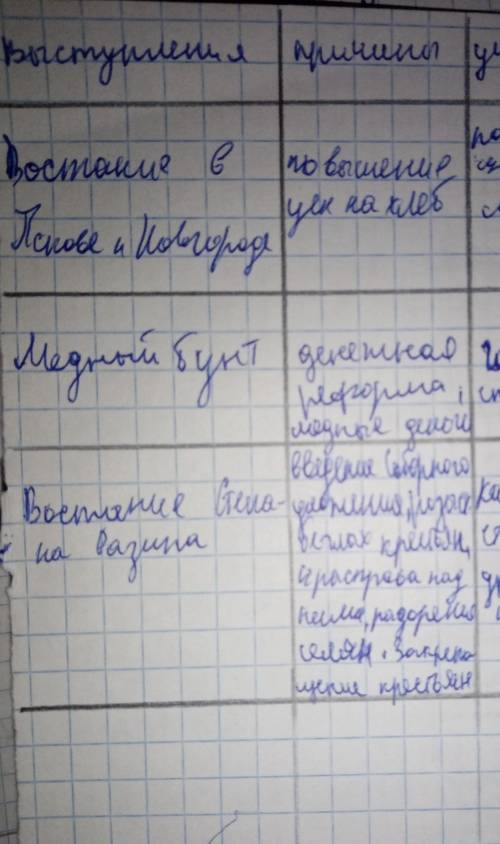 Выступления причины
Востание в
Пскове и Новгороде
повышение
цен на хлеб
по
Медный бунт
денежная
реформа,
медные деньги
Востание Степа-
на Разина
введение Соборного
уложения, розыск
беглых крестьян,
и расправа над
ними, разорение
селян. Закрепо
щение крестьян